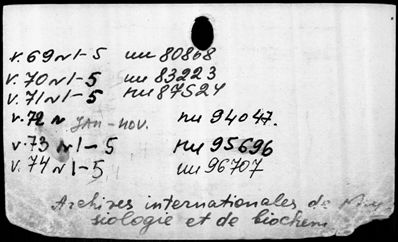 v. 69 N 1-5 ии 80868
v. 70 N 1-5 ии 83223
v. 71 N 1-5 ии 87524
v. 72 N JAN-NOV. ии 94047.
v. 73 N 1-5 ии 95696
v. 74 N 1-5 ии 96707
Archives internationales de
siologie et de biochem